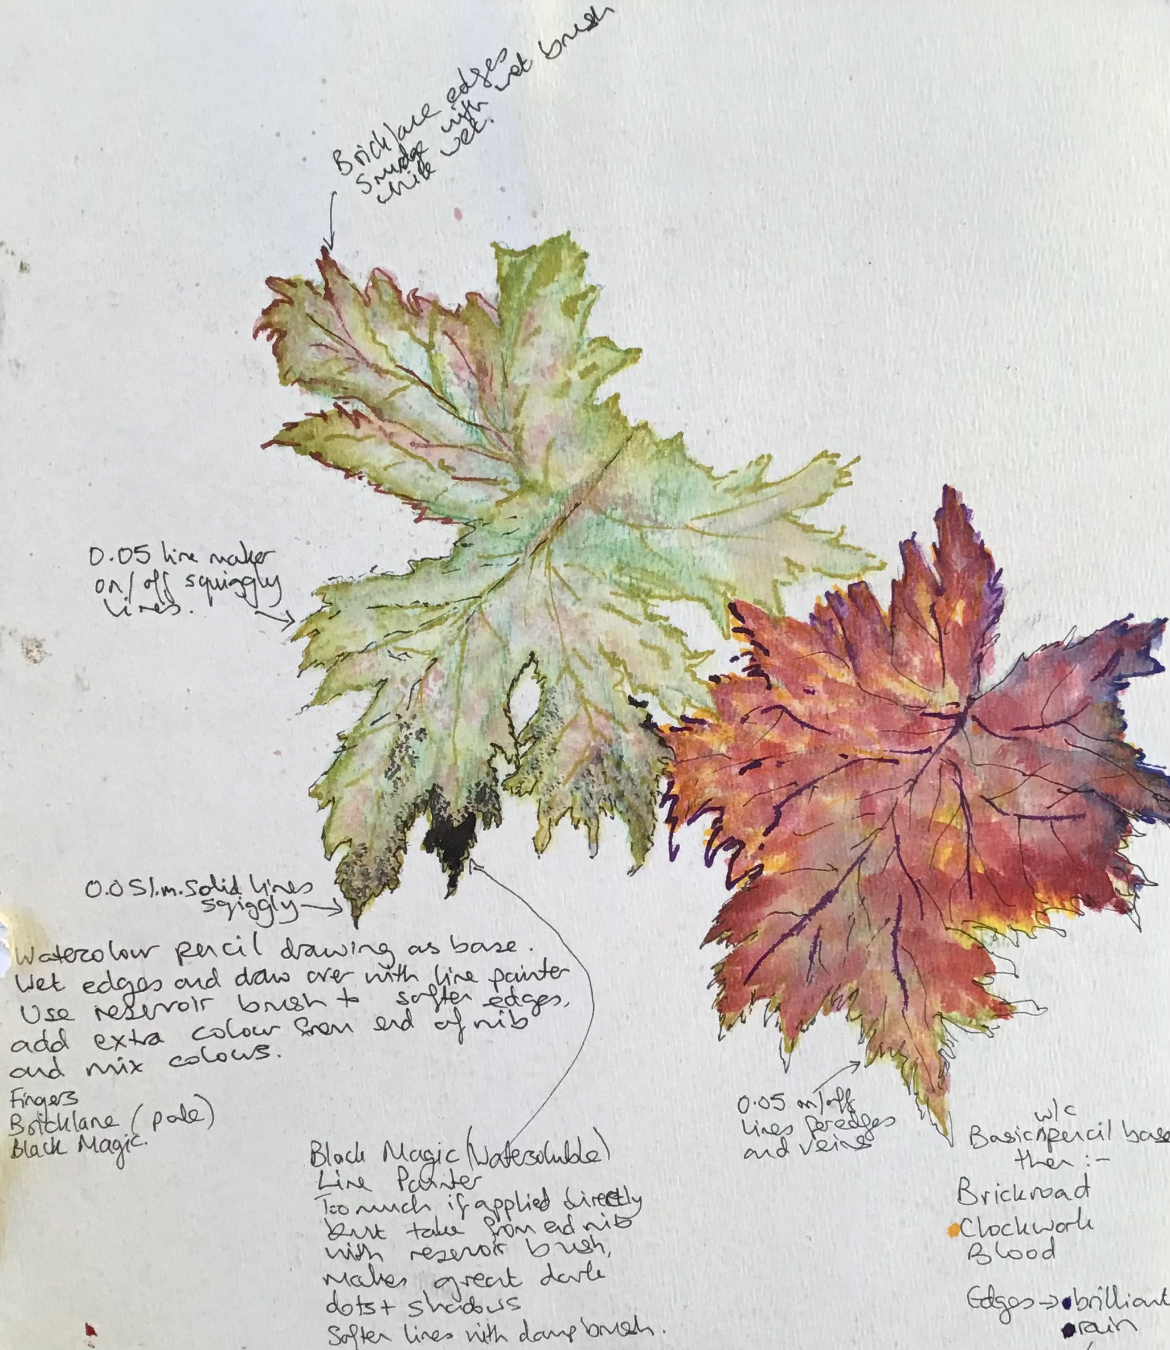 Bricklane edges
Smudge with wet brush
while wet.
0.05 line maker
on/off squiggly
lines.
0.05 l.m. solid lines
squiggly
Watercolour pencil drawing as base.
Wet edges and draw over with line painter
Use reservoir brush to soften edges,
add extra colour from end of nib
and mix colours.
Fingers
Bricklane (pale)
Black Magic.
Black Magic (watersoluble)
Line Painter
Too much if applied directly
but take from end nib
with reservoir brush,
makes great dark
dots + shadows
Soften lines with damp brush.
0.05 on/off
lines for edges
and veins
w/c
Basic pencil base
then :-
Brickroad
Clockwork
Blood
Edges → brilliant
rain